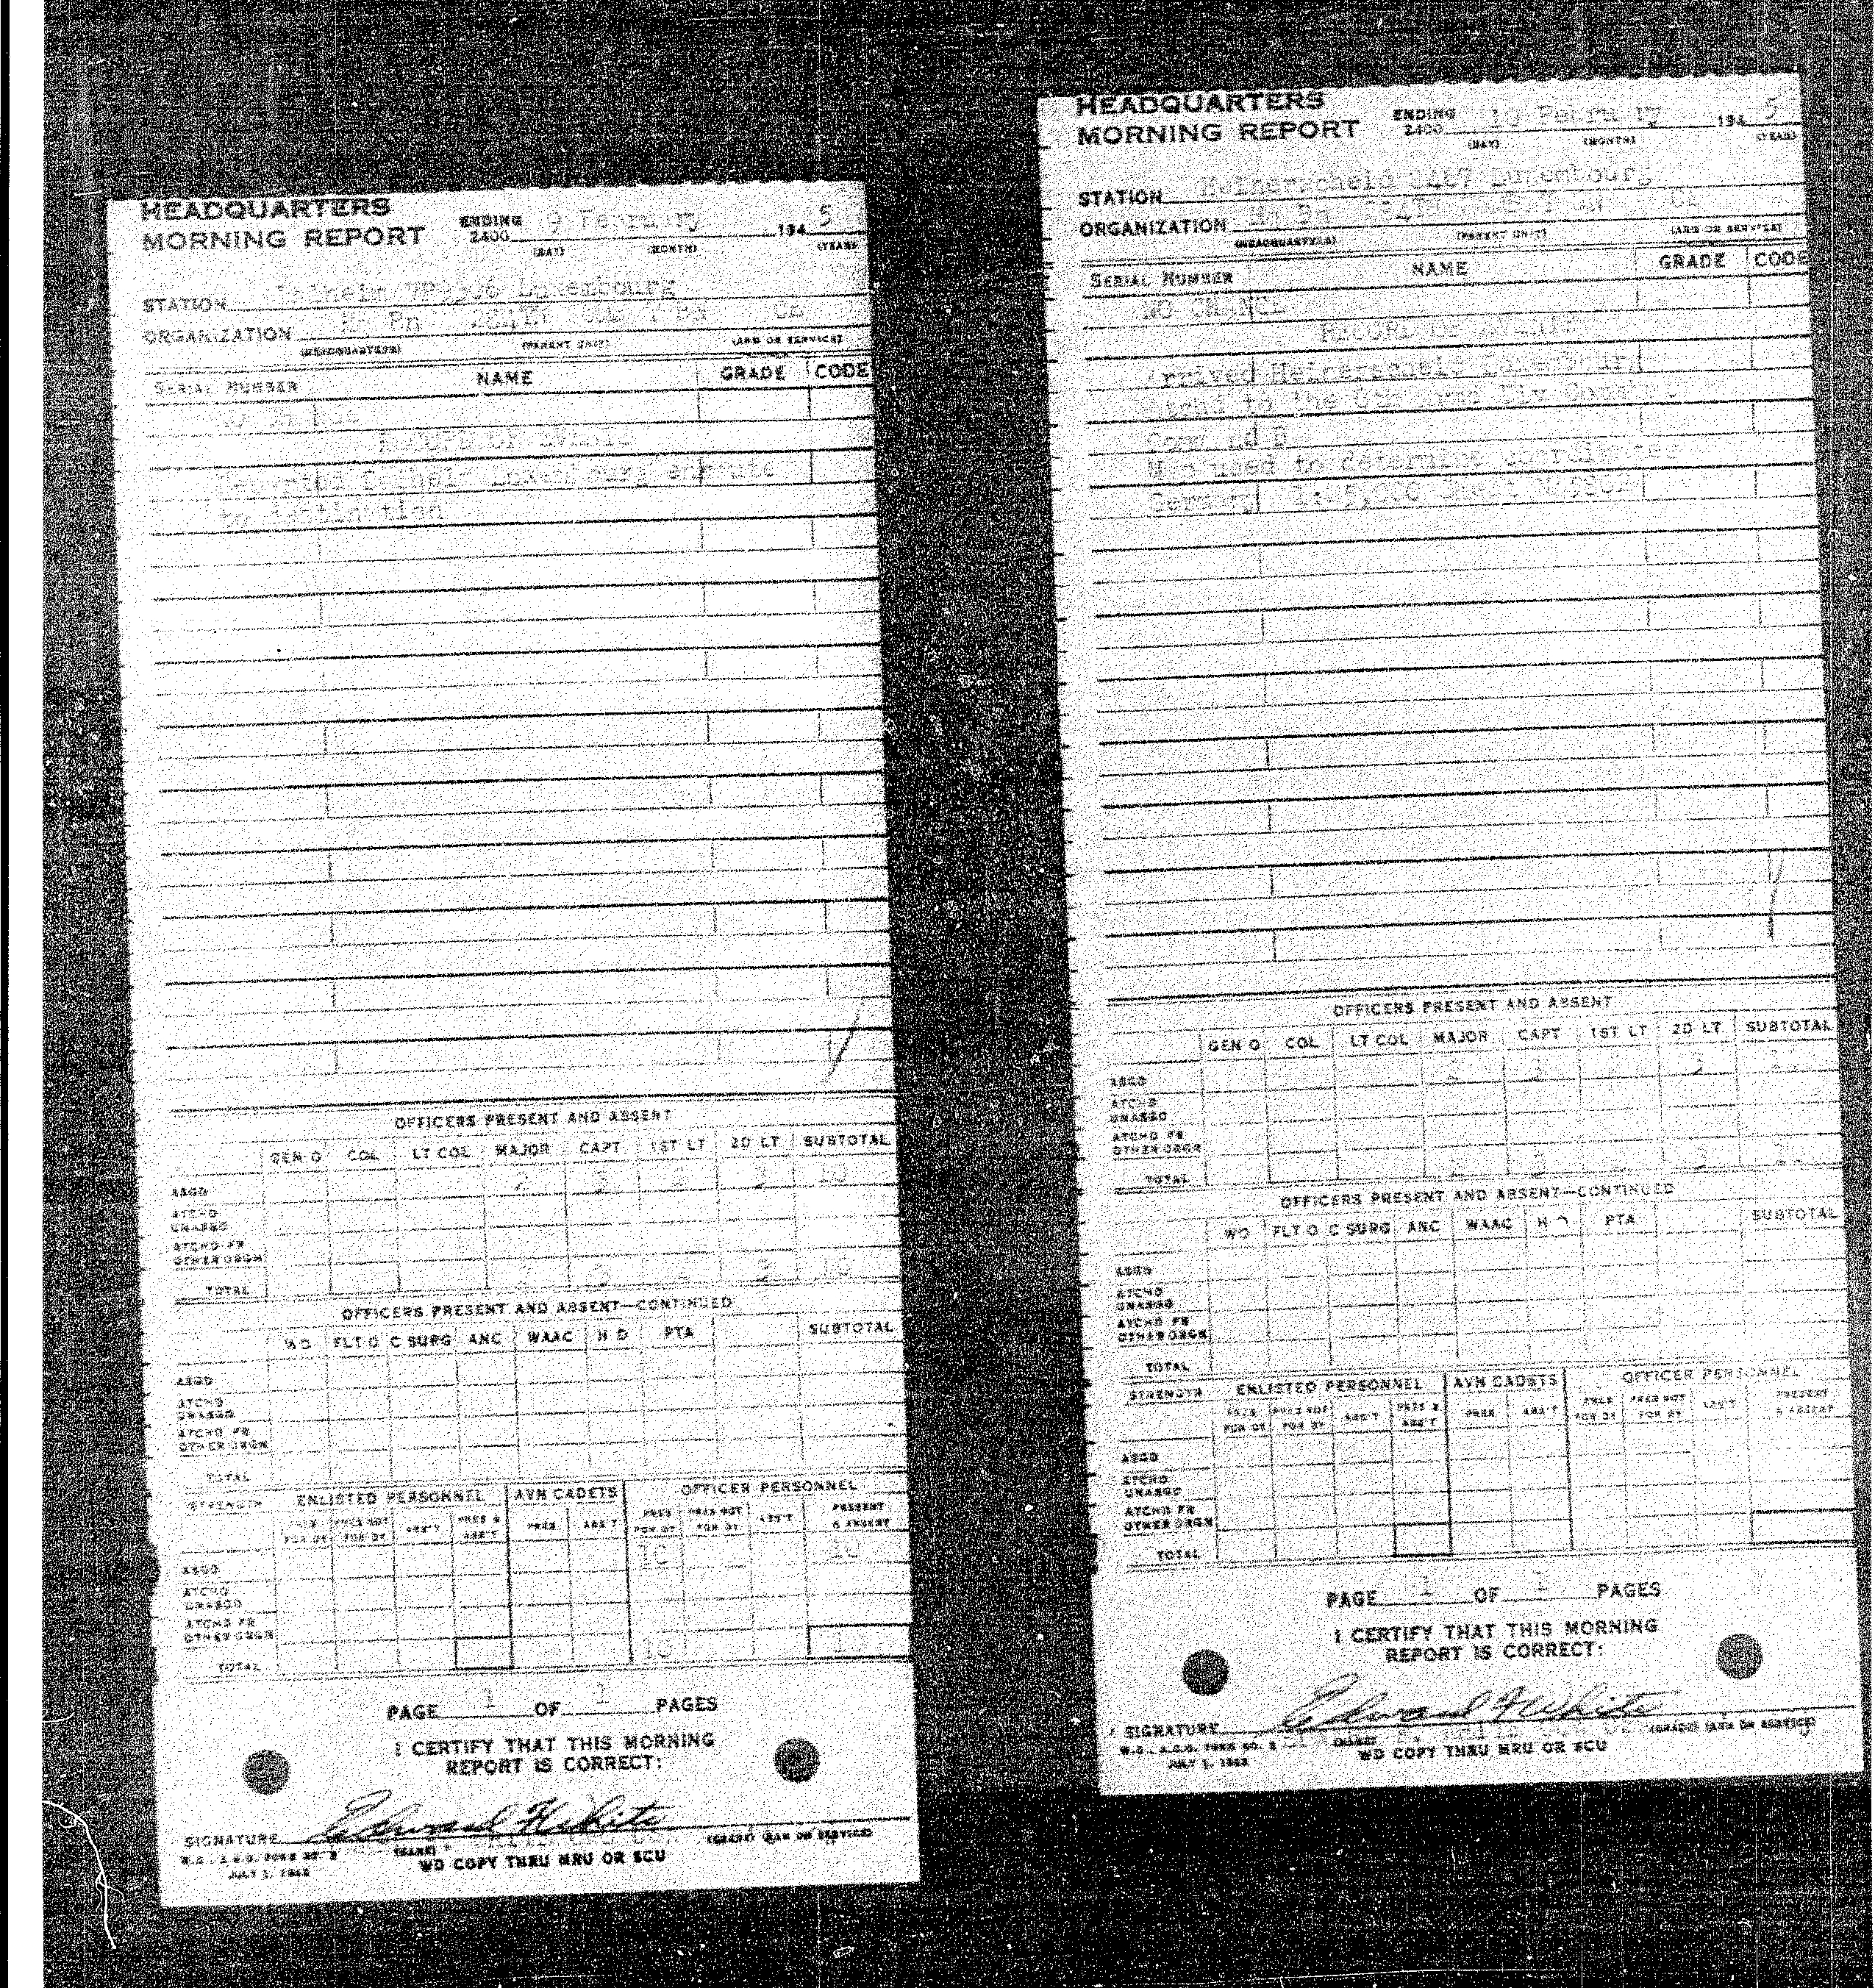 HEADQUARTERS
MORNING REPORT
ENDING 2400 9 February 194 5
(DAY) (MONTH) (YEAR)
STATION Luxembourg
ORGANIZATION Hq Bn
(HEADQUARTERS) (PARENT UNIT) (ARM OR SERVICE)
SERIAL NUMBER NAME GRADE CODE
RECORD OF EVENTS
Luxembourg enroute
to destination
OFFICERS PRESENT AND ABSENT
GEN O COL LT COL MAJOR CAPT 1ST LT 2D LT SUBTOTAL
ASGD 3 3 10
ATCHD UNASGD
ATCHD FR OTHER ORGN
TOTAL 3 3 10
OFFICERS PRESENT AND ABSENT—CONTINUED
WO FLT O C SURG ANC WAAC H D PTA SUBTOTAL
ASGD
ATCHD UNASGD
ATCHD FR OTHER ORGN
TOTAL
STRENGTH ENLISTED PERSONNEL AVN CADETS OFFICER PERSONNEL
PRES FOR DY PRES NOT FOR DY ABS'T PRES & ABS'T PRES ABS'T PRES FOR DY PRES NOT FOR DY ABS'T PRESENT & ABSENT
ASGD 10 10
ATCHD UNASGD
ATCHD FR OTHER ORGN
TOTAL 10 10
PAGE 1 OF 1 PAGES
I CERTIFY THAT THIS MORNING
REPORT IS CORRECT:
SIGNATURE Edward F White
(NAME) (GRADE) (ARM OR SERVICE)
W.D., A.G.O. FORM NO.
JULY 1, 1942
WD COPY THRU MRU OR SCU
HEADQUARTERS
MORNING REPORT
ENDING 2400 10 February 194 5
(DAY) (MONTH) (YEAR)
STATION Heinerscheid Luxembourg
ORGANIZATION Hq Bn
(HEADQUARTERS) (PARENT UNIT) (ARM OR SERVICE)
SERIAL NUMBER NAME GRADE CODE
NO CHANGE
RECORD OF EVENTS
Arrived Heinerscheid Luxembourg
Atchd to the 6th Armd Div Combat
Command B
Map used to determine coordinates
Germany
OFFICERS PRESENT AND ABSENT
GEN O COL LT COL MAJOR CAPT 1ST LT 2D LT SUBTOTAL
ASGD 3 3
ATCHD UNASGD
ATCHD FR OTHER ORGN
TOTAL 3 3
OFFICERS PRESENT AND ABSENT—CONTINUED
WO FLT O C SURG ANC WAAC H D PTA SUBTOTAL
ASGD
ATCHD UNASGD
ATCHD FR OTHER ORGN
TOTAL
STRENGTH ENLISTED PERSONNEL AVN CADETS OFFICER PERSONNEL
PRES FOR DY PRES NOT FOR DY ABS'T PRES & ABS'T PRES ABS'T PRES FOR DY PRES NOT FOR DY ABS'T PRESENT & ABSENT
ASGD
ATCHD UNASGD
ATCHD FR OTHER ORGN
TOTAL
PAGE 1 OF 1 PAGES
I CERTIFY THAT THIS MORNING
REPORT IS CORRECT:
SIGNATURE Edward F White
(NAME) (GRADE) (ARM OR SERVICE)
W.D., A.G.O. FORM NO.
JULY 1, 1942
WD COPY THRU MRU OR SCU